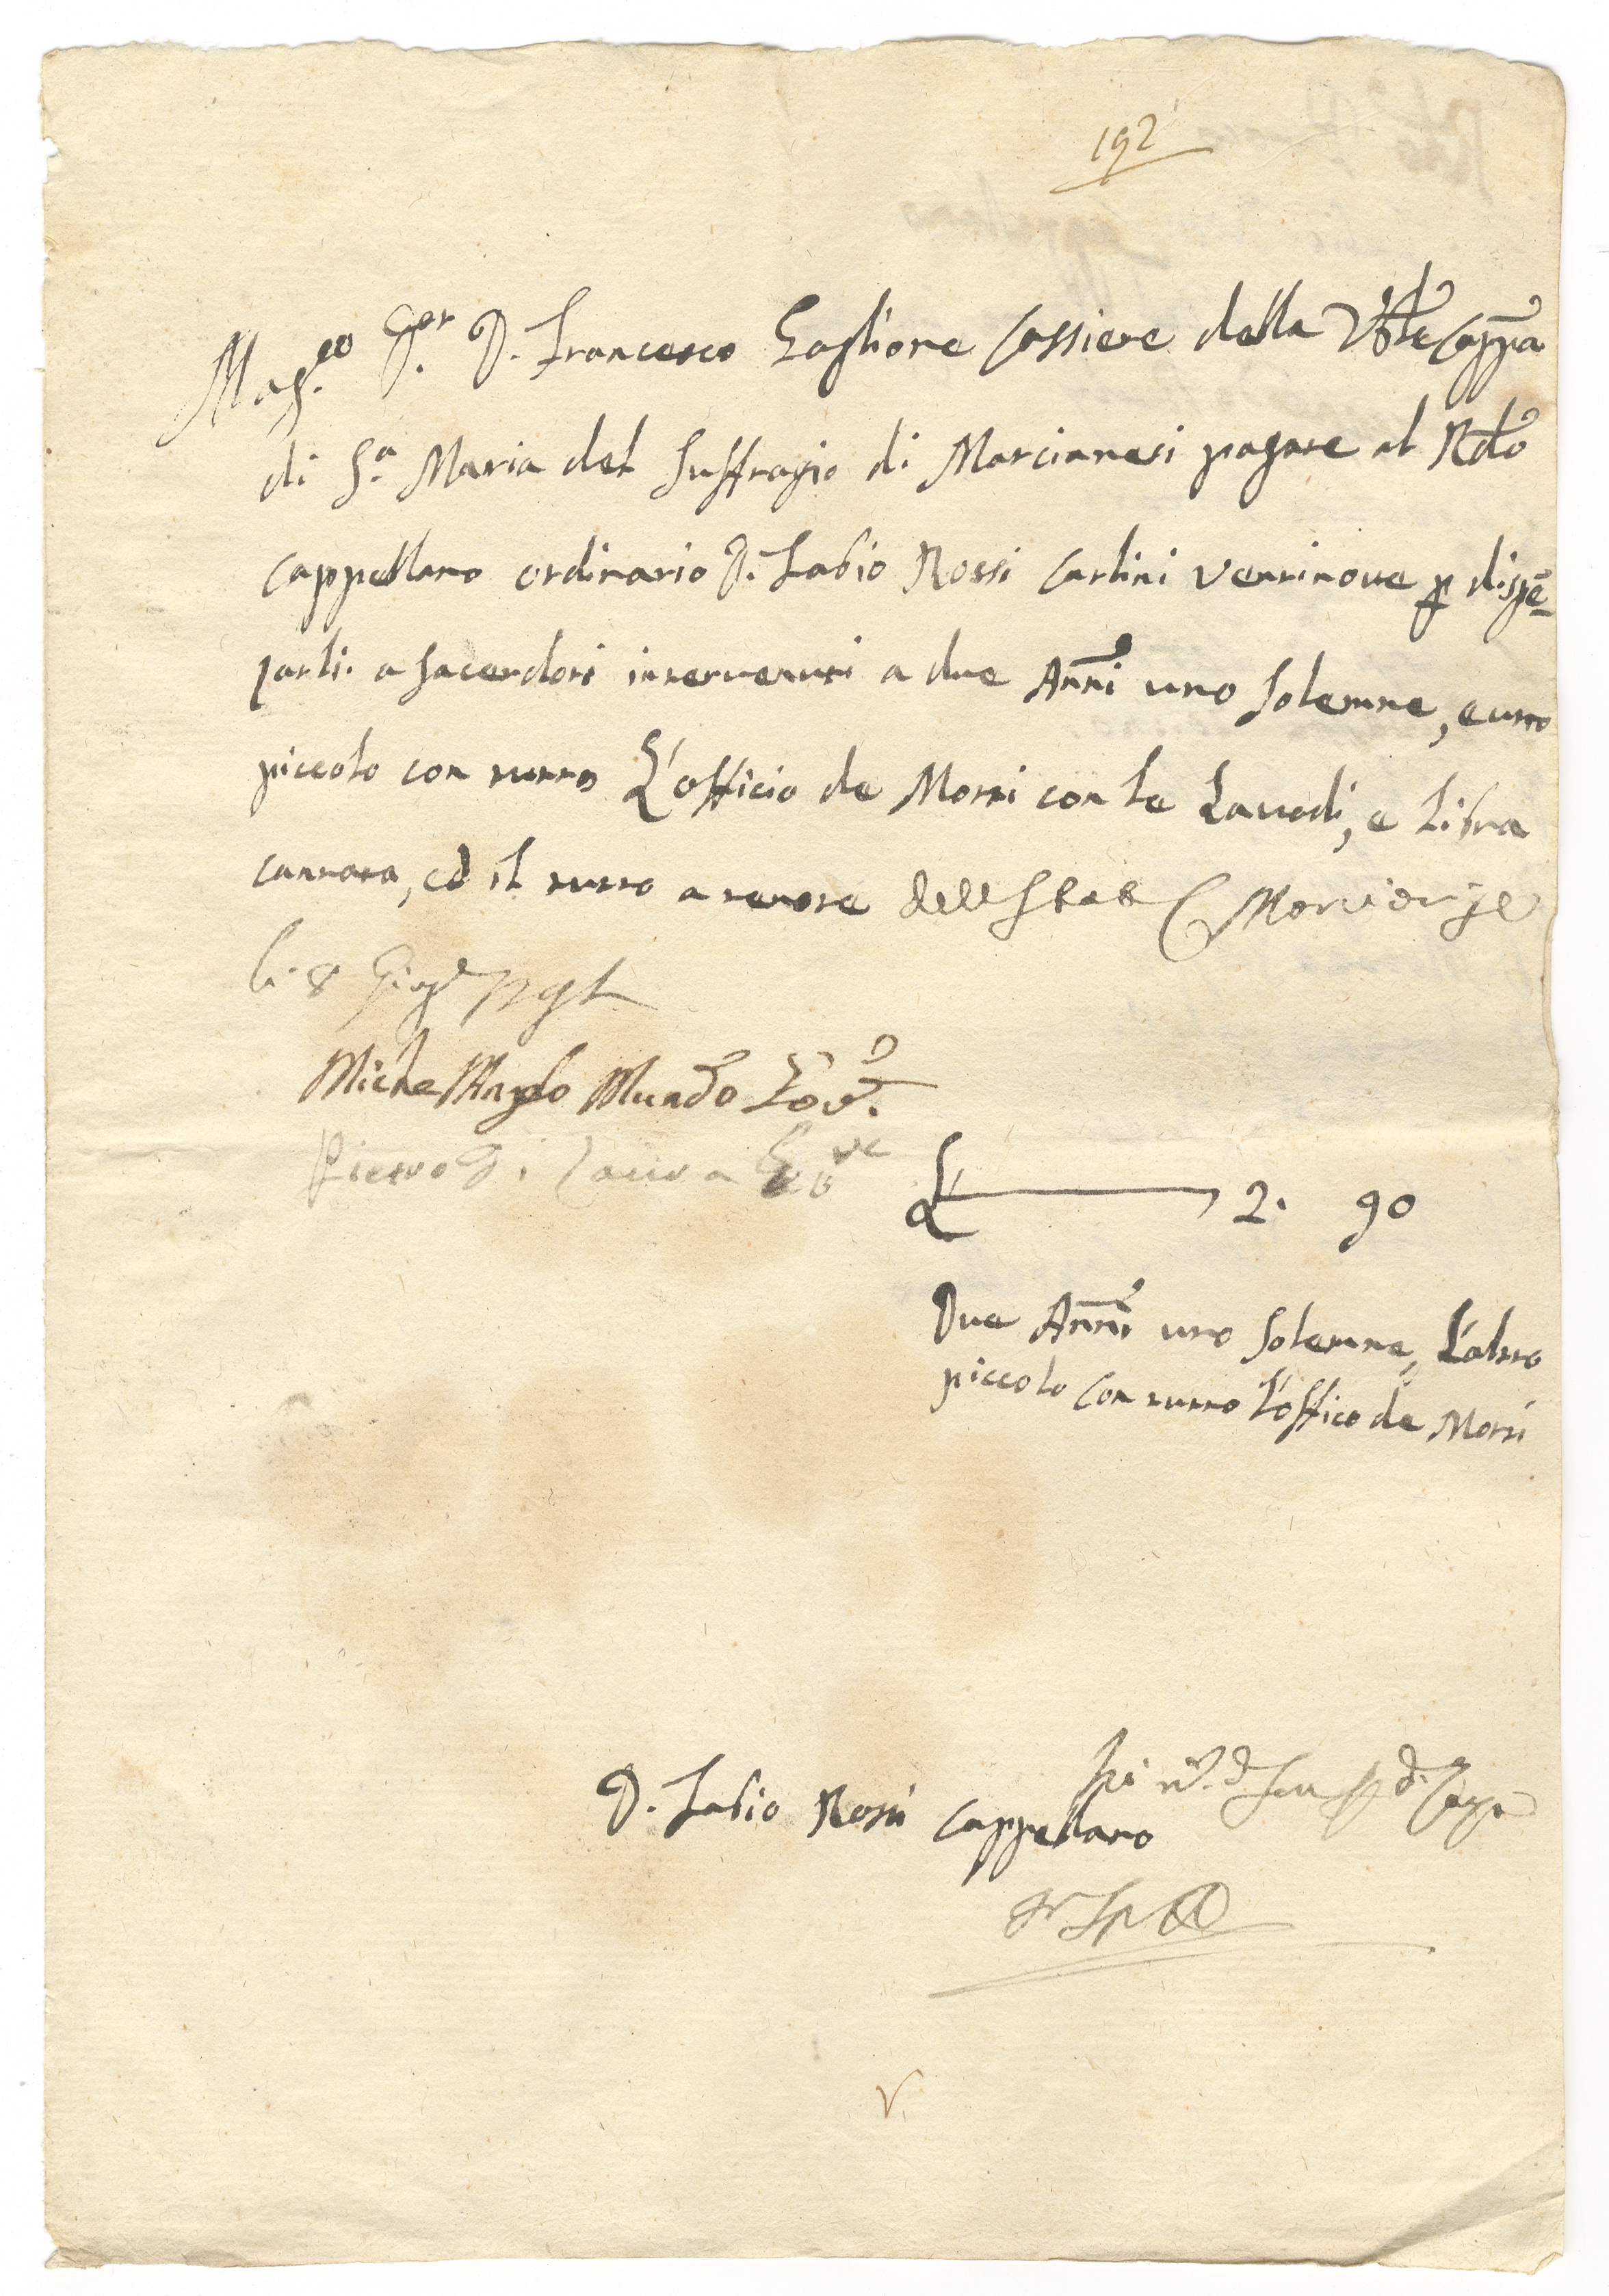 192
Mag.co Sig.r D. Francesco Gaglione Cassiere della V.ble Capp.a
di S.a Maria del Suffragio di Marcianesi pagate al R.do
Cappellano ordinario D. Fabio Rossi Carlini ventinove p dispē-
zarli a Sacerdoti intervenuti a due Ann.i uno Solenne, e uno
piccolo con tutto L'officio de Morti con le Laudi, e Libra
cantata, ed il tutto a tenore dell
li 8
Michel'Angelo Mundo Gov.
Pietro di
D 2. 90
Due Ann.i uno Solenne, L'altro
piccolo con tutto L'officio de Morti
D. Fabio Rossi Cappellano
V.